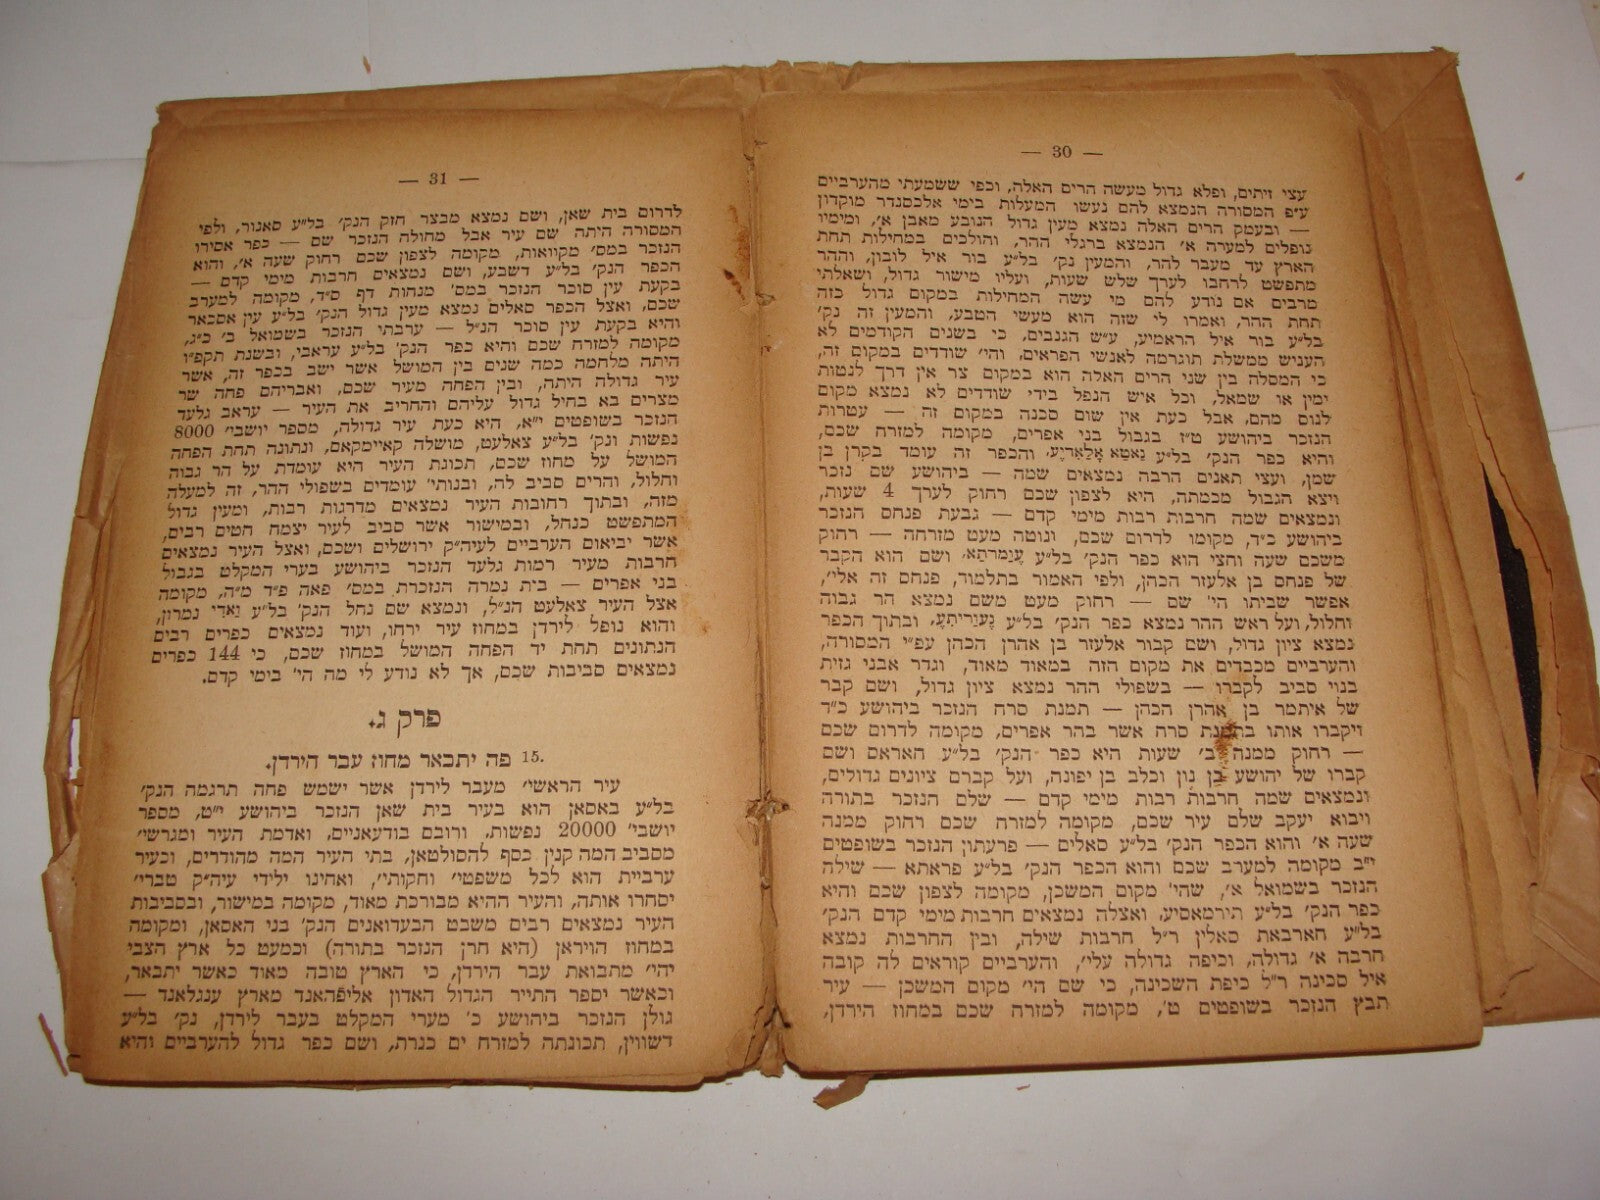 — 30 —
עצי זיתים, ופלא גדול מעשה הרים האלה, וכפי ששמעתי מהערביים
ע״פ המסורה הנמצא להם נעשו המעלות בימי אלכסנדר מוקדין
— ובעמק הרים האלה נמצא מעין גדול הנובע מאבן א׳, ומימיו
נופלים למערה א׳ הנמצא ברגלי ההר, והולכים במחילות תחת
הארץ עד מעבר להר, והמעין נק׳ בל״ע בור איל לובון, וההר
מתפשט לרחבו לערך שלש שעות, ועליו מישור גדול, ושאלתי
מרבים אם נודע להם מי עשה המחילות במקום גדול כזה
תחת ההר, ואמרו לי שזה הוא מעשי הטבע, והמעין זה נק׳
בל״ע בור איל הראמיע, ע״ש הגנבים, כי בשנים הקודמים לא
העניש ממשלת תוגרמה לאנשי הפראים, והי׳ שודדים במקום זה,
כי המסלה בין שני הרים האלה הוא במקום צר אין דרך לנטות
ימין או שמאל, וכל איש הנפל בידי שודדים לא נמצא מקום
לנוס מהם, אבל כעת אין שום סכנה במקום זה — עטרות
הנזכר ביהושע ט״ז בגבול בני אפרים, מקומה למזרח שכם,
והיא כפר הנק׳ בל״ע נאטא אלאריע, והכפר זה עומד בקרן בן
שמן, ועצי תאנים הרבה נמצאים שמה — ביהושע שם נזכר
ויצא הגבול מכמתה, היא לצפון שכם רחוק לערך 4 שעות,
ונמצאים שמה חרבות רבות מימי קדם — גבעת פנחס הנזכר
ביהושע כ״ד, מקומו לדרום שכם, ונוטה מעט מזרחה — רחוק
משכם שעה וחצי הוא כפר הנק׳ בל״ע עוומרתא, ושם הוא הקבר
של פנחס בן אלעזר הכהן, ולפי האמור בתלמוד, פנחס זה אלי׳,
אפשר שביתו הי׳ שם — רחוק מעט משם נמצא הר גבוה
וחלול, ועל ראש ההר נמצא כפר הנק׳ בל״ע, ובתוך הכפר
נמצא ציון גדול, ושם קבור אלעזר בן אהרן הכהן עפ״י המסורה,
והערביים מכבדים את מקום הזה במאוד מאוד, וגדר אבני גזית
בנוי סביב לקברו — בשפולי ההר נמצא ציון גדול, ושם קבר
של איתמר בן אהרן הכהן — תמנת סרח הנזכר ביהושע כ״ד
ויקברו אותו בתמנת סרח אשר בהר אפרים, מקומה לדרום שכם
— רחוק ממנה ב׳ שעות היא כפר הנק׳ בל״ע האראם ושם
קברו של יהושע בן נון וכלב בן יפונה, ועל קברם ציונים גדולים,
ונמצאים שמה חרבות רבות מימי קדם — שלם הנזכר בתורה
ויבוא יעקב שלם עיר שכם, מקומה למזרח שכם רחוק ממנה
שעה א׳ והוא הכפר הנק׳ בל״ע סאלים — פרעתון הנזכר בשופטים
י״ב מקומה למערב שכם והוא הכפר הנק׳ בל״ע פראתא — שילה
הנזכר בשמואל א׳, שהי׳ מקום המשכן, מקומה לצפון שכם והיא
כפר הנק׳ בל״ע תירמאסיע, ואצלה נמצאים חרבות מימי קדם הנק׳
בל״ע חארבאת סאלין ר״ל חרבות שילה, ובין החרבות נמצא
חרבה א׳ גדולה, וכיפה גדולה עלי׳, והערביים קוראים לה קובה
איל סכינה ר״ל כיפת השכינה, כי שם הי׳ מקום המשכן — עיר
תבץ הנזכר בשופטים ט׳, מקומה למזרח שכם במחוז הירדן,
— 31 —
לדרום בית שאן, ושם נמצא מבצר חזק הנק׳ בל״ע סאנור, ולפי
המסורה היתה שם עיר אבל מחולה הנזכר שם — כפר אסירו
הנזכר במס׳ מקוואות, מקומה לצפון שכם רחוק שעה א׳, והוא
הכפר הנק׳ בל״ע דשבע, ושם נמצאים חרבות מימי קדם —
בקעת עין סוכר הנזכר במס׳ מנחות דף ס״ד, מקומה למערב
שכם, ואצל הכפר סאלים נמצא מעין גדול הנק׳ בל״ע עין אסכאר
והיא בקעת עין סוכר הנ״ל — ערבתי הנזכר בשמואל ב׳ כ״ג,
מקומה למזרח שכם והיא כפר הנק׳ בל״ע עראבי, ובשנת תקפ״ו
היתה מלחמה כמה שנים בין המושל אשר ישב בכפר זה, אשר
עיר גדולה היתה, ובין הפחה מעיר שכם, ואבריהם פחה שר
מצרים בא בחיל גדול עליהם והחריב את העיר — עראב גלעד
הנזכר בשופטים י״א, היא כעת עיר גדולה, מספר יושבי׳ 8000
נפשות ונק׳ בל״ע צאלעט, מושלה קאיימקאם, ונתונה תחת הפחה
המושל על מחוז שכם, תכונת העיר היא עומדת על הר גבוה
וחלול, והרים סביב לה, ובנותי׳ עומדים בשפולי ההר, זה למעלה
מזה, ובתוך רחובות העיר נמצאים מדרגות רבות, ומעין גדול
המתפשט כנחל, ובמישור אשר סביב לעיר יצמח חטים רבים,
אשר יביאום הערביים לעיה״ק ירושלים ושכם, ואצל העיר נמצאים
חרבות מעיר רמות גלעד הנזכר ביהושע בערי המקלט בגבול
בני אפרים — בית נמרה הנזכרת במס׳ פאה פ״ד מ״ה, מקומה
אצל העיר צאלעט הנ״ל, ונמצא שם נחל הנק׳ בל״ע ואדי נמרון,
והוא נופל לירדן במחוז עיר ירחו, ועוד נמצאים כפרים רבים
הנתונים תחת יד הפחה המושל במחוז שכם, כי 144 כפרים
נמצאים סביבות שכם, אך לא נודע לי מה הי׳ בימי קדם.
פרק ג.
15. פה יתבאר מחוז עבר הירדן.
עיר הראשי׳ מעבר לירדן אשר ישמש פחה תרגמה הנק׳
בל״ע באסאן הוא בעיר בית שאן הנזכר ביהושע י״ט, מספר
יושבי׳ 20000 נפשות, ורובם בודעאניים, ואדמת העיר ומגרשי׳
מסביב המה קנין כסף להסולטאן, בתי העיר המה מהודרים, וכעיר
ערביית הוא לכל משפטי׳ וחקותי׳, ואחינו ילידי עיה״ק טברי׳
יסחרו אותה, והעיר ההיא מבורכת מאוד, מקומה במישור, ובסביבות
העיר נמצאים רבים משבט הבעדואנים הנק׳ בני האסאן, ומקומה
במחוז הויראן (היא חרן הנזכר בתורה) וכמעט כל ארץ הצבי
יהי׳ מתבואת עבר הירדן, כי הארץ טובה מאוד כאשר יתבאר,
וכאשר יספר התייר הגדול האדון אליפהאנד מארץ ענגלאנד —
גולן הנזכר ביהושע כ׳ מערי המקלט בעבר לירדן, נק׳ בל״ע
דשווין, תכונתה למזרח ים כנרת, ושם כפר גדול להערביים והיא